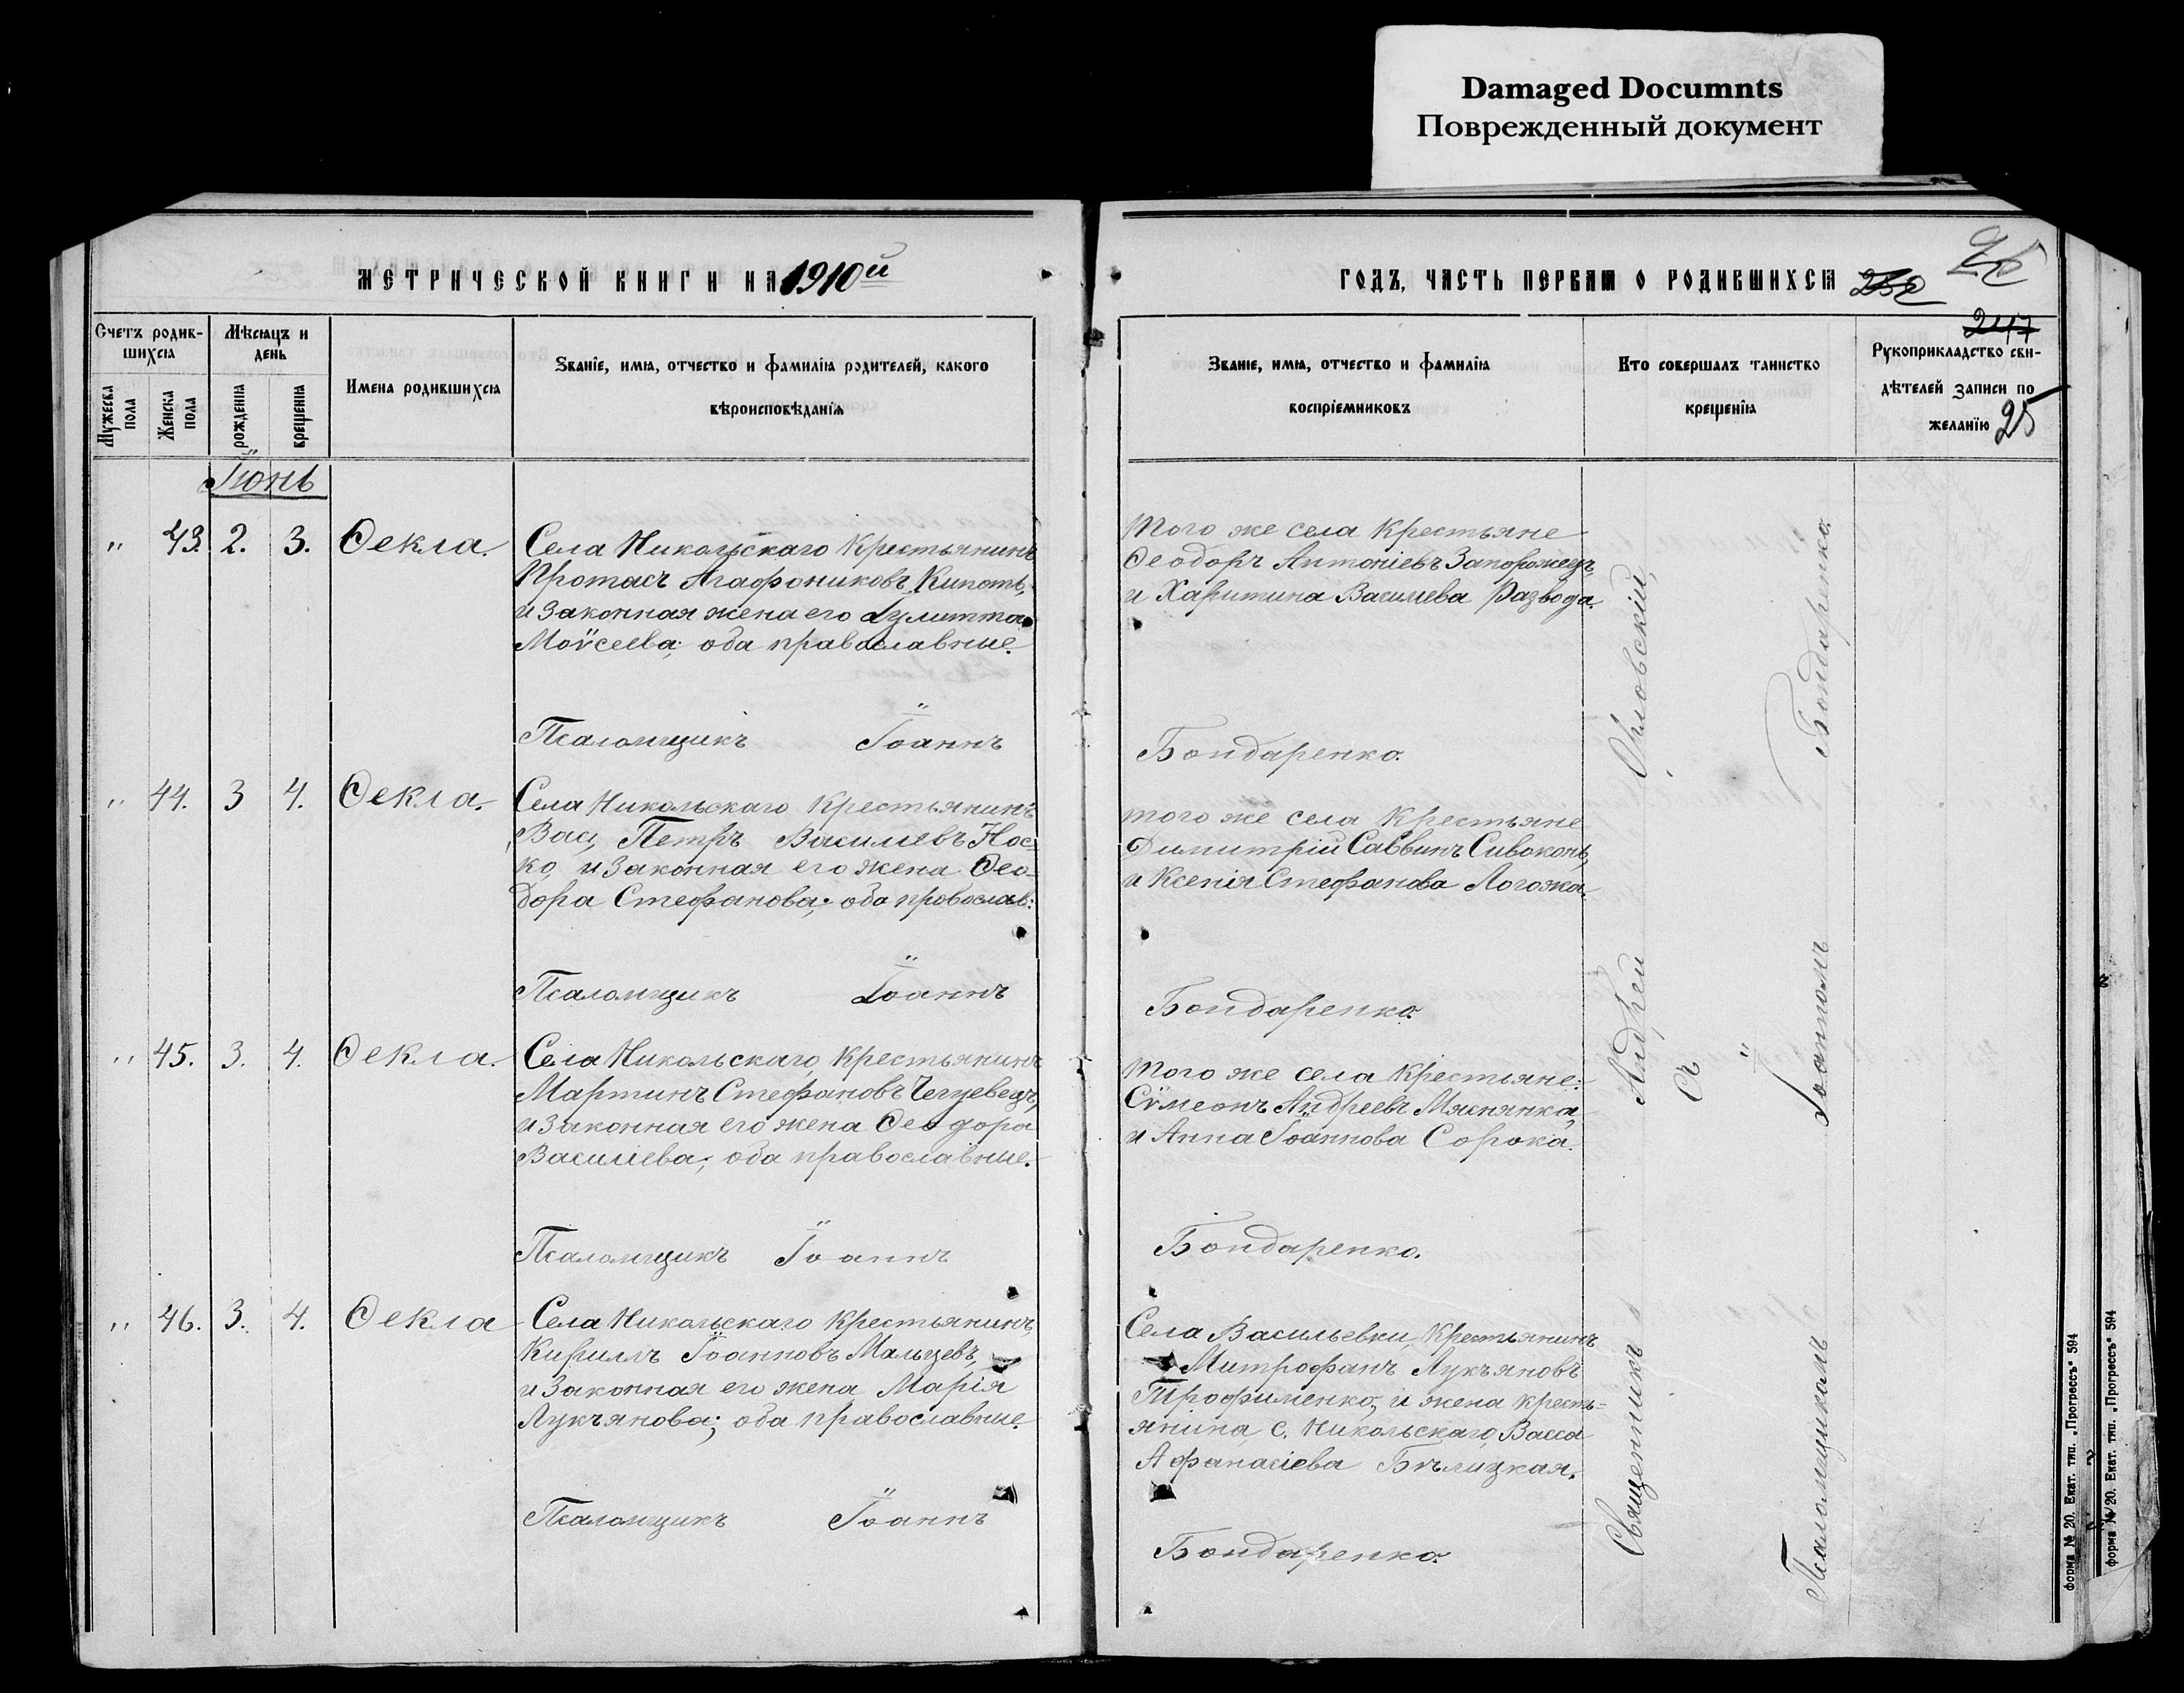 Damaged Documnts
Поврежденный документ
МЕТРИЧЕСКОЙ КНИГИ НА 1910й
ГОДЪ, ЧАСТЬ ПЕРВАЯ О РОДИВШИХСЯ
247
25
Счетъ родив-
шихся
Мужеска
пола
Женска
пола
Мѣсяцъ и
день
рожденія
крещенія
Имена родившихся
Званіе, имя, отчество и фамилія родителей, какого
вѣроисповѣданія
Званіе, имя, отчество и фамилія
воспріемниковъ
Кто совершалъ таинство
крещенія
Рукоприкладство сви-
дѣтелей записи по
желанію
Іюнь
" 43. 2. 3. Ѳекла.
Села Никольскаго Крестьянинъ
Протасъ Агафониковъ Кипоть,
и законная жена его Іулитта
Моѵсеева; оба православные.
Псаломщикъ Іоаннъ
того же села Крестьяне
Ѳеодоръ Антоніевъ Запорожецъ,
и Харитина Василиева Развода.
Бондаренко.
" 44. 3 4. Ѳекла.
Села Никольскаго Крестьянинъ
Вас, Петръ Василиевъ Нос-
ко, и законная его жена Ѳео-
дора Стефанова; оба православ:
Псаломщикъ Іоаннъ
того же села Крестьяне
Димитрій Саввинъ Сивоконь,
и Ксенія Стефанова Логожа.
Бондаренко.
" 45. 3. 4. Ѳекла.
Села Никольскаго, Крестьянинъ
Мартинъ Стефановъ
и законная его жена Ѳеодора
Василіева; оба православные.
Псаломщикъ Іоаннъ
того же села Крестьяне:
Сѵмеонъ Андреевъ Мяснянка,
и Анна Іоаннова Сорока.
Бондаренко.
" 46. 3. 4. Ѳекла
Села Никольскаго Крестьянинъ,
Кириллъ Іоанновъ Мальцевъ,
и законная его жена Марія
Лукъянова; оба православные.
Псаломщикъ Іоаннъ
Села Васильевки, Крестьянинъ
Митрофанъ Лукъяновъ
Трофименко, и жена кресть=
янина с. Никольскаго, Васса
Афанасіева Бѣлицкая.
Бондаренко.
Священникъ Андрей Орловскій,
съ
Псаломщикомъ Іоанномъ Бондаренко.
форма № 20. Екат. тип. „Прогрессъ" 594
форма № 20. Екат. тип. „Прогрессъ" 594